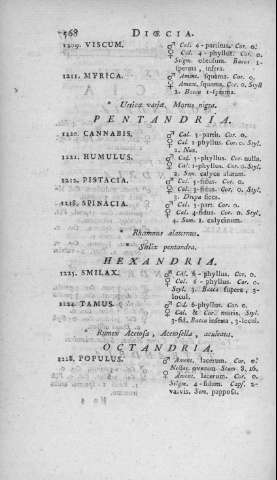 568 DIŒCIA.
1209. VISCUM. ♂ Cal. 4-partitus. Cor. 0.
♀ Cal. 4-phyllus. Cor. 0.
Stigm. obtusum. Bacca 1-
sperma, infera.
1211. MYRICA. ♂ Ament. squama. Cor. 0.
♀ Ament. squama. Cor. 0. Styli
2. Bacca 1-sperma.
* Urticæ variæ. Morus nigra.
PENTANDRIA.
1220. CANNABIS. ♂ Cal. 5-partit. Cor. 0.
♀ Cal. 1-phyllus. Cor. 0. Styli
2. Nux.
1221. HUMULUS. ♂ Cal. 5-phyllus. Cor. nulla.
♀ Cal. 1-phyllus. Cor. 0. Styli
2. Sem. calyce alatum.
1212. PISTACIA. ♂ Cal. 5-fidus. Cor. 0.
♀ Cal. 3-fidus. Cor. 0. Styl.
3. Drupa sicca.
1218. SPINACIA. ♂ Cal. 5-part. Cor. 0.
♀ Cal. 4-fidus. Cor. 0. Styl.
4. Sem. 1. calycinum.
* Rhamnus alaternus.
* Salix pentandra.
HEXANDRIA.
1223. SMILAX. ♂ Cal. 6-phyllus. Cor. 0.
♀ Cal. 6-phyllus. Cor. 0.
Styl. 3. Bacca supera, 3-
local.
1224. TAMUS. ♂ Cal. 6-phyllus. Cor. 0.
♀ Cal. & Cor. maris. Styl.
3-fid. Bacca infera, 3-locul.
* Rumex Acetosa, Acetosella, aculeata.
OCTANDRIA.
1228. POPULUS. ♂ Ament. lacerum. Cor. 0.
Nectar. ovatum Stam. 8, 16.
♀ Ament. lacerum. Cor. 0.
Stigm. 4-fidum. Caps. 2-
valvis. Sem. papposa.